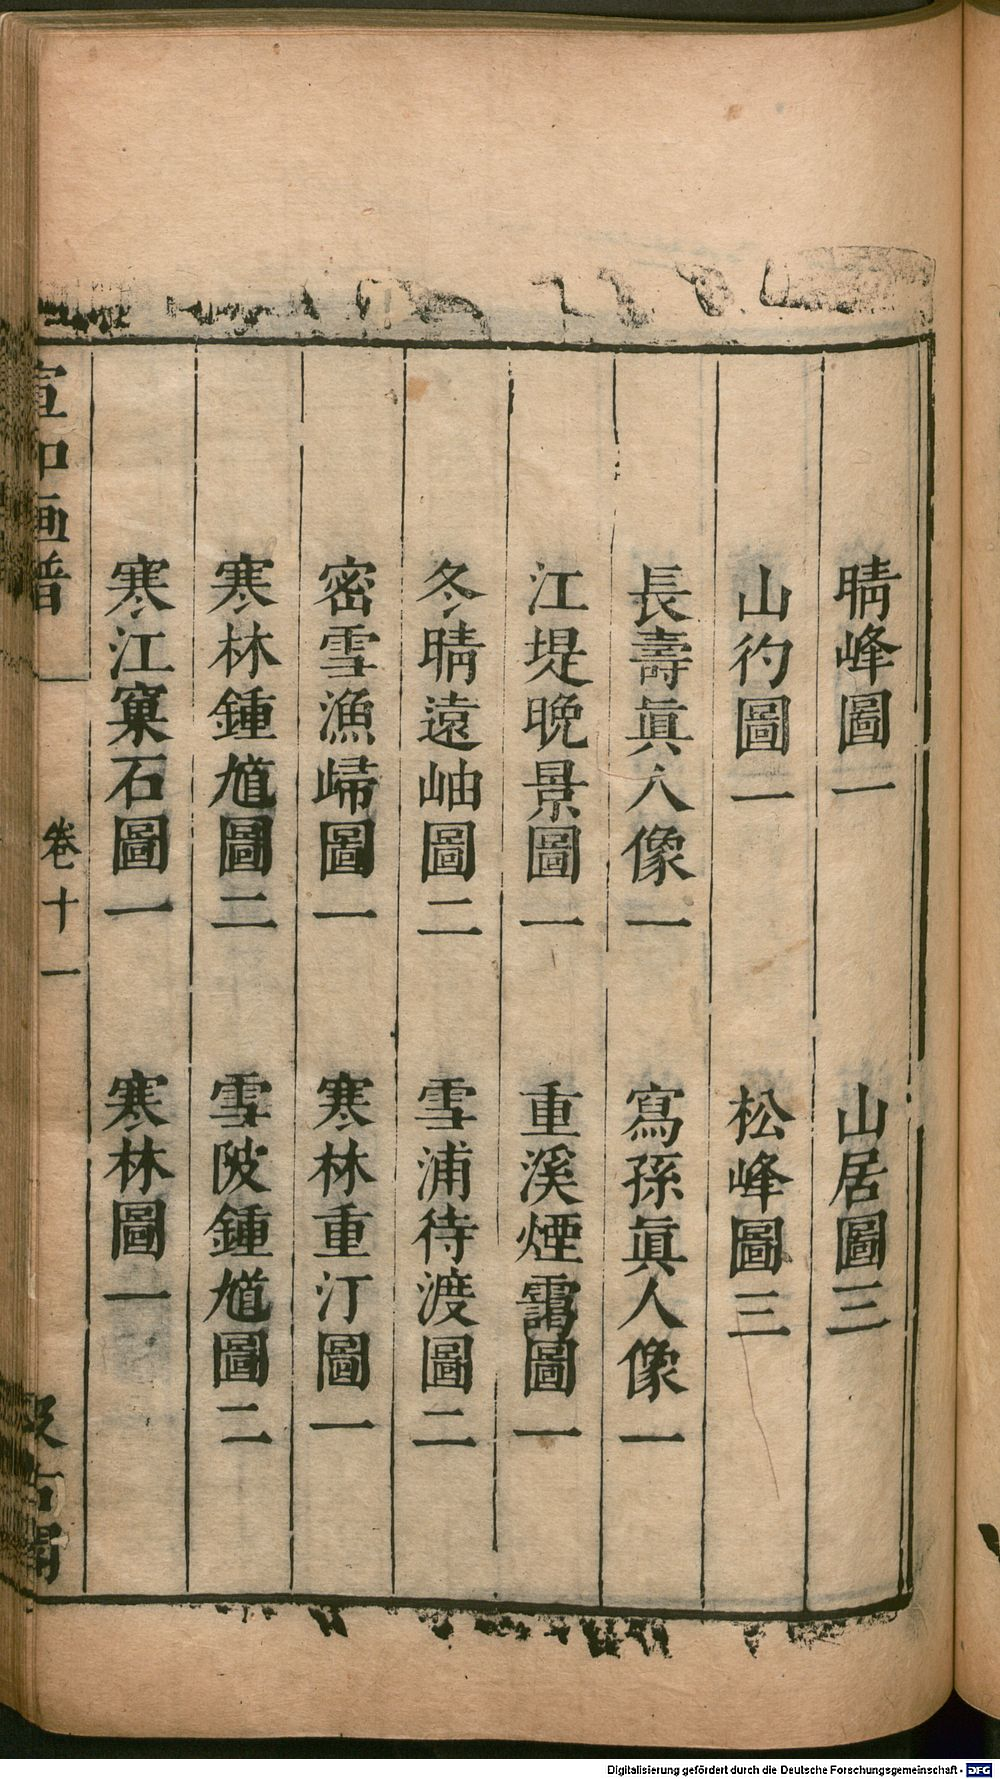 晴峰圖一　山居圖三
山彴圖一　松峰圖三
長壽眞人像一　寫孫眞人像一
江堤晩景圖一　重溪煙靄圖一
冬晴遠岫圖二　雪浦待渡圖二
密雪漁歸圖一　寒林重汀圖一
寒林鍾馗圖二　雪陂鍾馗圖二
寒江窠石圖一　寒林圖一
宣和画譜　卷十一　汲古閣
Digitalisierung gefördert durch die Deutsche Forschungsgemeinschaft - DFG